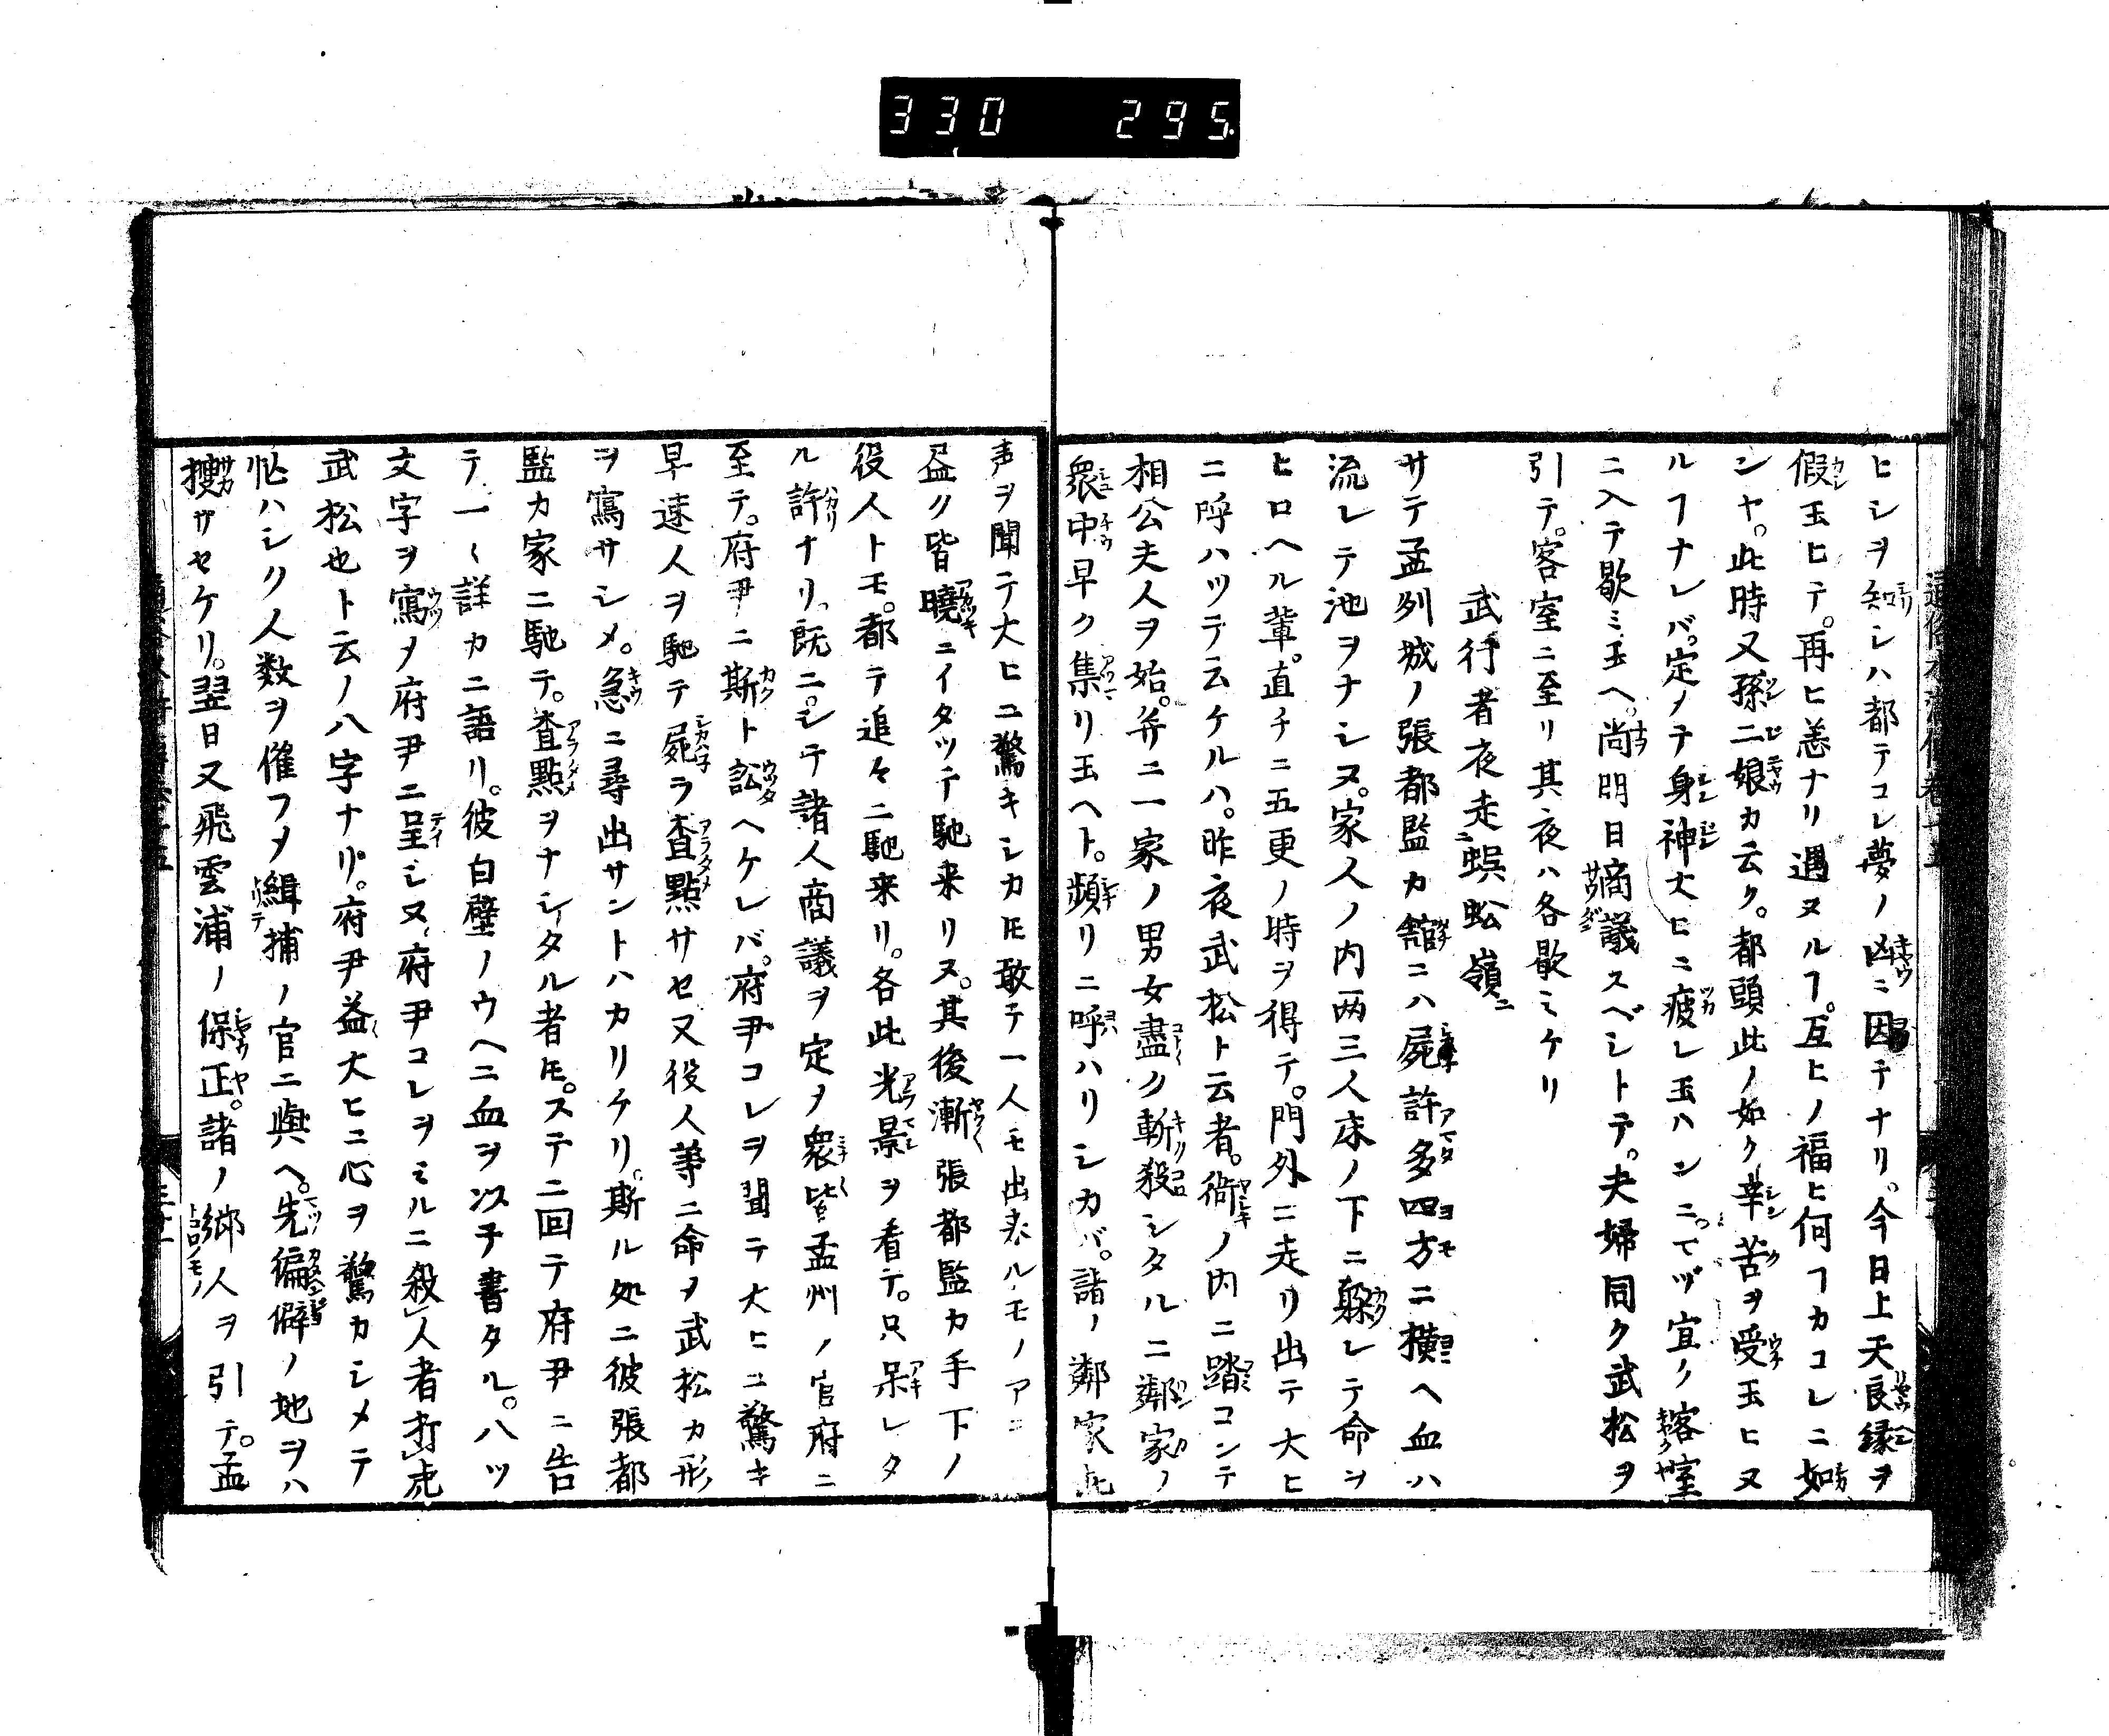 330 295
ヒシヲ知シハ都テコレ夢ノ凶ニ因テナリ。今日上天良縁ヲ
假玉ヒテ。再ヒ恙ナリ遇ヌルヿ。互ヒノ福ヒ何ヿカコレニ如
ンヤ。此時又孫二娘カ云ク。都頭此ノ如ク辛苦ヲ受玉ヒヌ
ルヿナレバ。定メテ身神大ヒニ疲レ玉ハンニ。マヅ宜ク客室
ニ入テ歇ミ玉ヘ。尚明日商議スベシトテ。夫婦同ク武松ヲ
引テ。客室ニ至リ其夜ハ各歇ミケリ
武行者夜走蜈蚣嶺
サテ孟列城ノ張都監カ舘ニハ屍許多四方ニ横ヘ血ハ
流レテ池ヲナシヌ。家人ノ内両三人床ノ下ニ躱レテ命ヲ
ヒロヘル輩。直チニ五更ノ時ヲ得テ。門外ニ走リ出テ大ヒ
ニ呼ハツテ云ケルハ。昨夜武松ト云者。衙ノ内ニ踏コンテ
相公夫人ヲ始。并ニ一家ノ男女盡ク斬殺シタルニ鄰家ノ
衆中早ク集リ玉ヘト。頻リニ呼ハリシカバ。諸ノ鄰家此
声ヲ聞テ大ヒニ驚キシカ𪜈敢テ一人モ出来ルモノアラ
盈ク皆曉ニイタツテ馳来リヌ。其後漸張都監カ手下ノ
役人トモ。都テ追々ニ馳来リ。各此光景ヲ看テ。只呆レタ
ル許ナリ。既ニ。シテ諸人商議ヲ定メ衆皆孟州ノ官府ニ
至テ。府尹ニ斯ト訟ヘケレバ。府尹コレヲ聞テ大ヒニ驚キ
早速人ヲ馳テ屍ヲ査點サセ又役人等ニ命メ武松カ形
ヲ寫サシメ。急ニ尋出サントハカリケリ。斯ル処ニ彼張都
監カ家ニ馳テ。査點ヲナシタル者𪜈。ステニ回テ府尹ニ告
テ一〱詳カニ語リ。彼白壁ノウヘニ血ヲ以テ書タル。ハツ
文字ヲ寫メ府尹ニ呈シヌ。府尹コレヲミルニ殺人者打虎
武松也ト云ノ八字ナリ。府尹益大ヒニ心ヲ驚カシメテ
忙ハシク人数ヲ催フメ緝捕ノ官ニ與ヘ。先偏僻ノ地ヲハ
捜サセケリ。翌日又飛雲浦ノ保正。諸ノ郷人ヲ引テ。孟